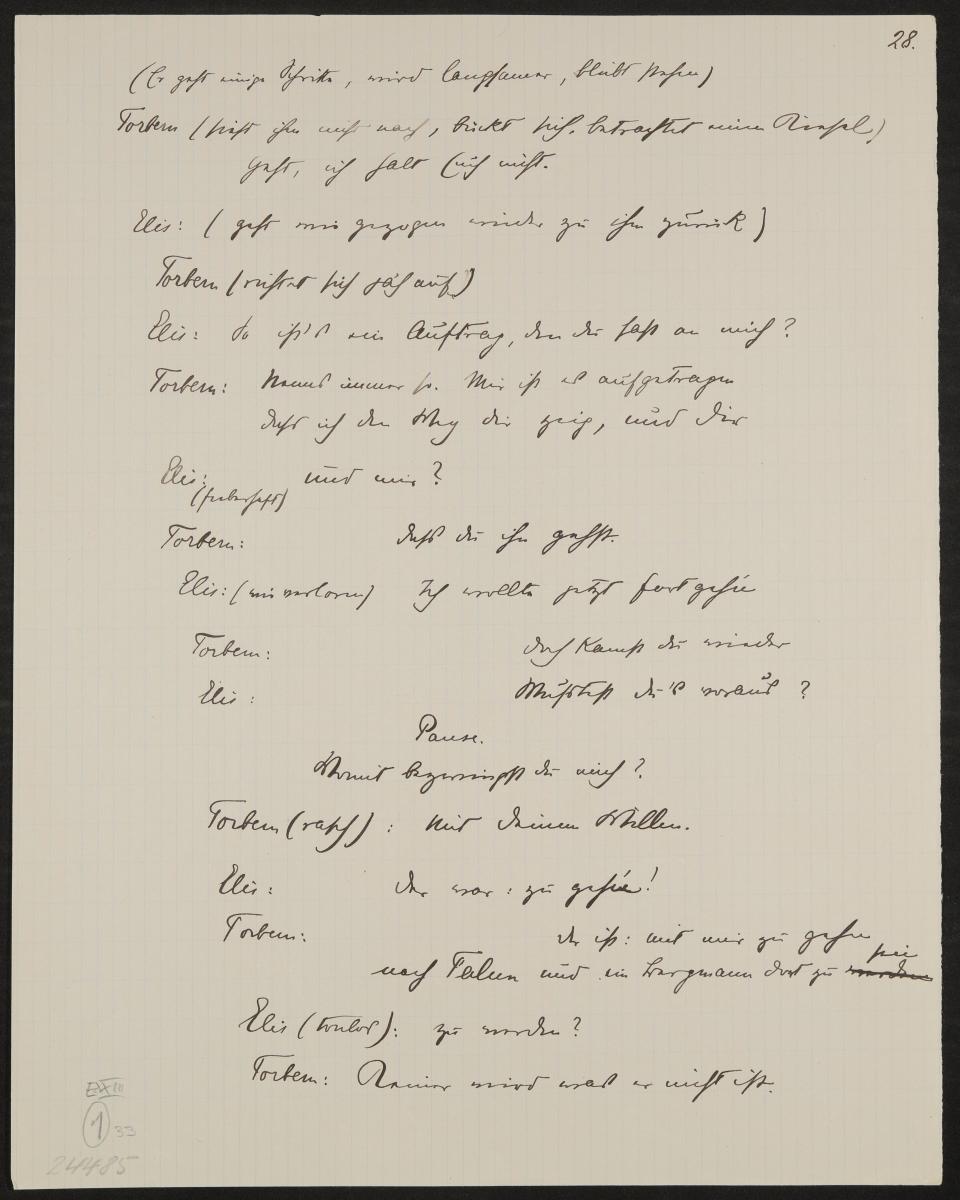 28.
(Er geht einige Schritte, wird langsamer, bleibt stehen)
Torbern (sieht ihm nicht nach, bückt sich, betrachtet einen )
Geht, ich halt Euch nicht.
Elis: (geht wie gezogen wieder zu ihm zurück)
Torbern (richtet sich jäh auf)
Elis: So ist's ein Auftrag, den du hast an mich?
Torbern: Nenns immer so. Mir ist es aufgetragen
dass ich den Weg dir zeig, und dir
Elis: und mir?
(fieberhaft)
Torbern: dass du ihn gehst.
Elis: (wie verloren) Ich wollte jetzt fortgehn
Torbern: doch kamst du wieder
Elis: Wusstest du's voraus?
Pause.
Womit bezwingst du mich?
Torbern (rasch): Mit deinem Willen.
Elis: der war: zu gehn!
Torbern: der ist: mit mir zu gehen
sein
nach Falun und ein Bergmann dort zu werden
Elis (tonlos): zu werden?
Torbern: Keiner wird was er nicht ist.
E XIII
1 33
24485